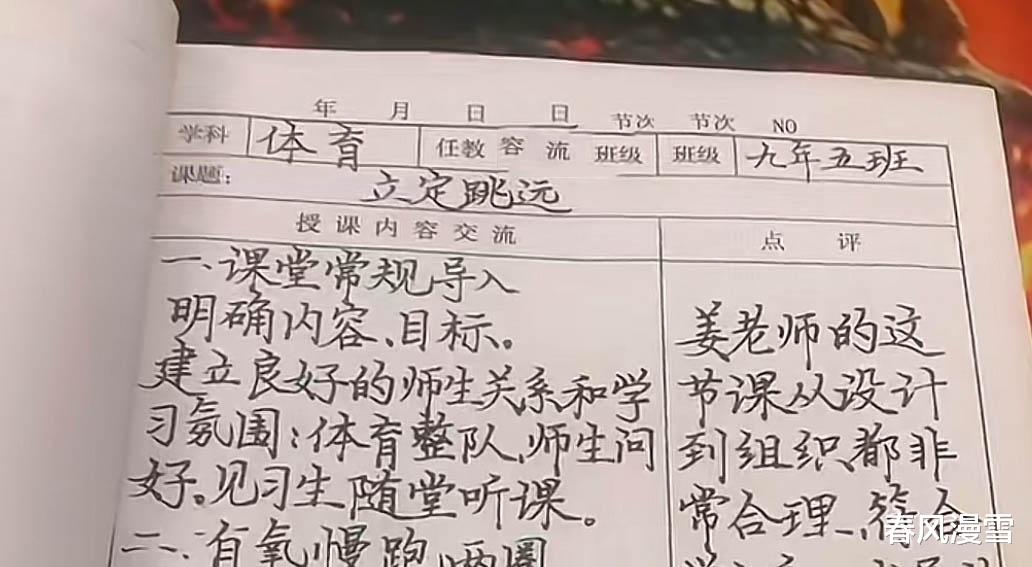 年 月 日 日 节次 节次 NO
学科 体育 任教 容 流 班级 班级 九年五班
课题: 立定跳远
授课内容交流 点 评
一、课堂常规导入
明确内容、目标。
建立良好的师生关系和学
习氛围:体育整队,师生问
好。见习生随堂听课。
二、有氧慢跑两圈
姜老师的这
节课从设计
到组织都非
常合理、符合
春风漫雪